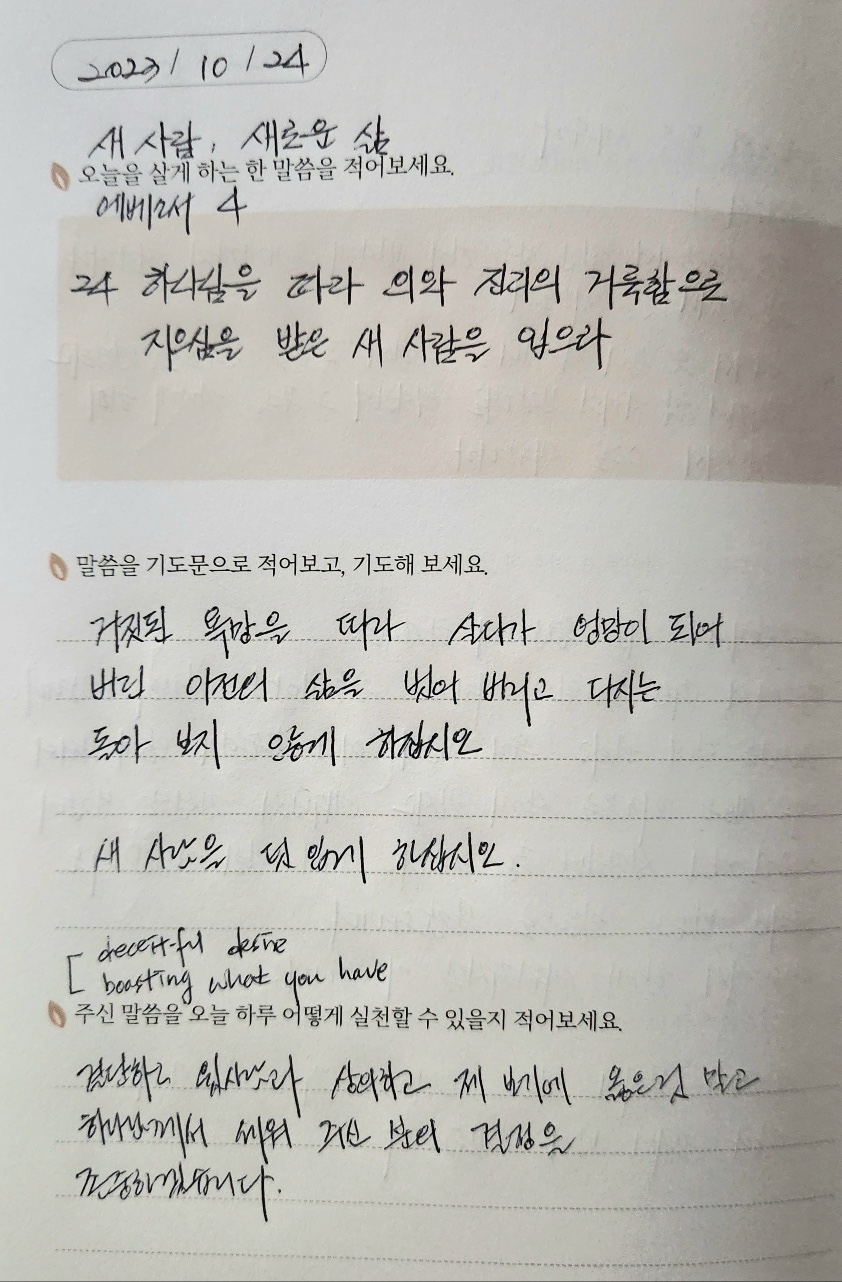 2023 / 10 / 24
새 사람, 새로운 삶
오늘을 살게 하는 한 말씀을 적어보세요.
에베소서 4
24 하나님을 따라 의와 진리의 거룩함으로
지으심을 받은 새 사람을 입으라
말씀을 기도문으로 적어보고, 기도해 보세요.
거짓된 욕망을 따라 살다가 엉망이 되어
버린 이전의 삶을 벗어 버리고 다시는
돌아 보지 않게 하십시오
새 사람을 덧 입게 하십시오.
deceitful desire
boasting what you have
주신 말씀을 오늘 하루 어떻게 실천할 수 있을지 적어보세요.
결단하고 상의하고 제 보기에 옳은것 말고
하나님께서 세워 주신 분의 결정을
존중하겠습니다.